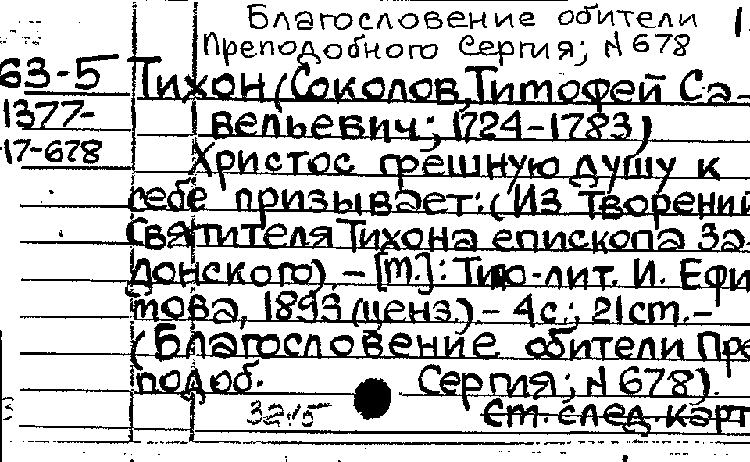 Благословение обители 1
Преподобного Сергия; N 678
63-5 Тихон (Соколов, Тимофей Са-
1377- вельевич; 1724-1783)
17-678 Христос грешную душу к
себе призывает: (Из творений
Святителя Тихона епископа За-
донского). – [М.]: Типо-лит. И. Ефи
мова, 1893 (ценз.). – 4 с.; 21 см. –
(Благословение обители Пре
подоб. Сергия; N 678).
См. след. карт